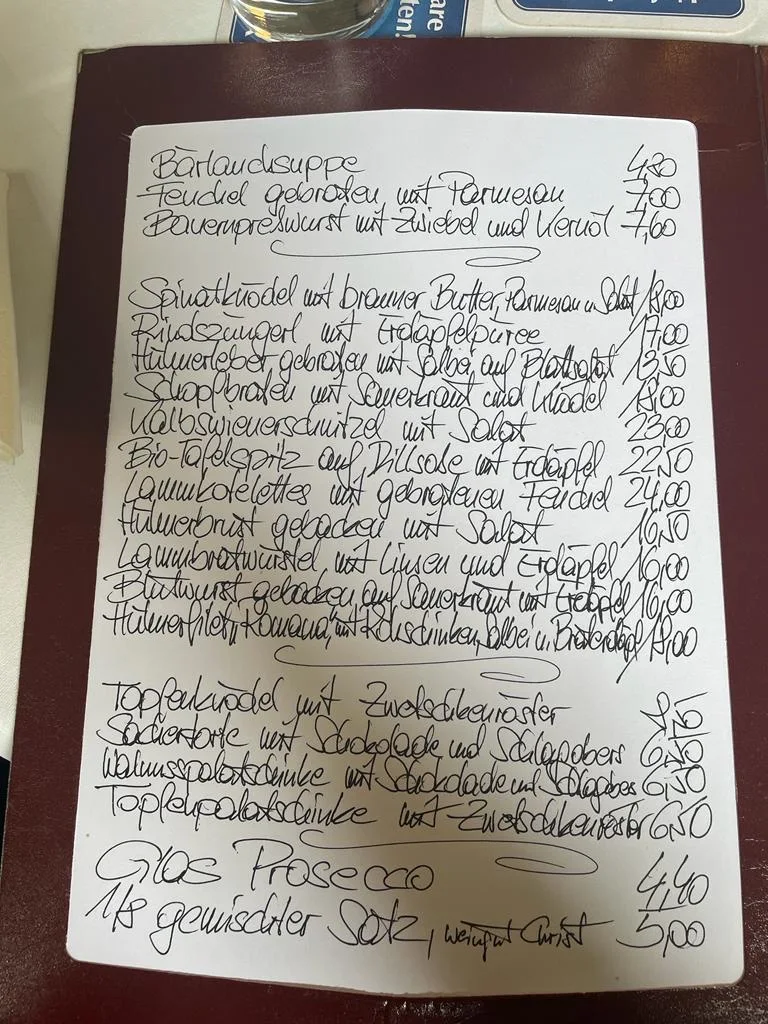 are
ten!
Bärlauchsuppe 4,80
Fenchel gebraten mit Parmesan 7,00
Bauernpreßwurst mit Zwiebel und Kernöl 7,60
Spinatknödel mit brauner Butter, Parmesan u. Salat 18,00
Rindszüngerl mit Erdäpfelpüree 17,00
Hühnerleber gebraten mit Salbei auf Blattsalat 13,50
Schopfbraten mit Sauerkraut und Knödel 18,00
Kalbswienerschnitzel mit Salat 23,00
Bio-Tafelspitz auf Dillsoße mit Erdäpfel 22,50
Lammkotelettes mit gebratenen Fenchel 24,00
Hühnerbrust gebacken mit Salat 16,50
Lammbratwürstel mit Linsen und Erdäpfel 16,00
Blutwurst gebacken auf Sauerkraut mit Erdäpfel 16,00
Hühnerfilet „Romana" mit Rohschinken, Salbei u. Braterdäpfel 18,00
Topfenknödel mit Zwetschkenröster
Sachertorte mit Schokolade und Schlagobers 6,50
Walnusspalatschinke mit Schokolade und Schlagobers 6,50
Topfenpalatschinke mit Zwetschkenröster 6,50
Glas Prosecco 4,40
1/8 gemischter Satz, Weingut Christ 5,00